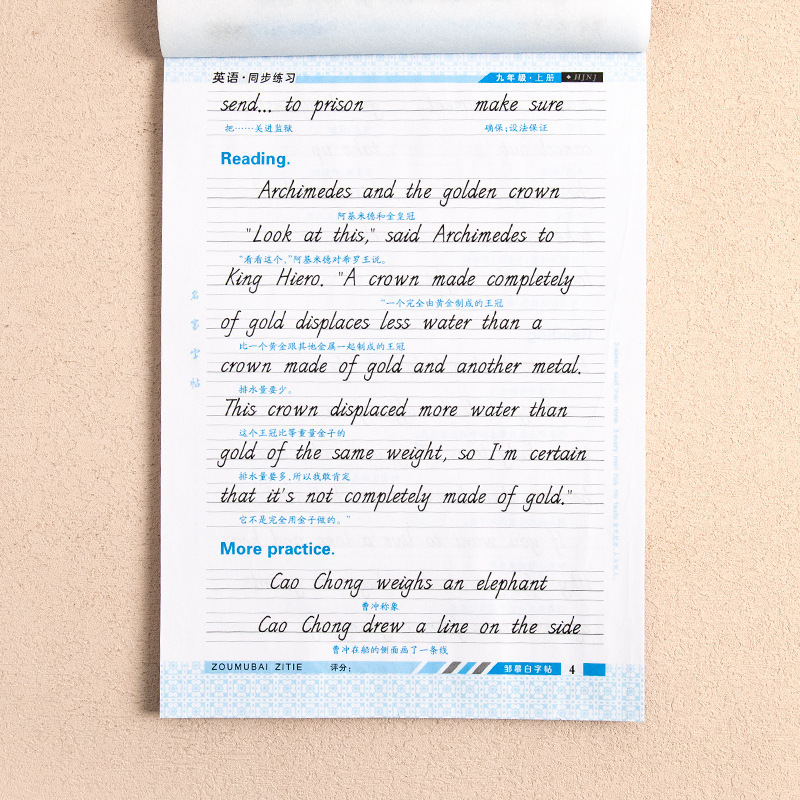 英语·同步练习 九年级·上册 ◆HJNJ
send... to prison make sure
把……关进监狱 确保;设法保证
Reading.
Archimedes and the golden crown
阿基米德和金皇冠
"Look at this," said Archimedes to
"看看这个,"阿基米德对希罗王说。
King Hiero. "A crown made completely
"一个完全由黄金制成的王冠
of gold displaces less water than a
比一个黄金跟其他金属一起制成的王冠
crown made of gold and another metal.
排水量要少。
This crown displaced more water than
这个王冠比等重量金子的
gold of the same weight, so I'm certain
排水量要多,所以我敢肯定
that it's not completely made of gold."
它不是完全用金子做的。"
More practice.
Cao Chong weighs an elephant
曹冲称象
Cao Chong drew a line on the side
曹冲在船的侧面画了一条线
ZOUMUBAI ZITIE 评分: 邹慕白字帖 4
名家字帖